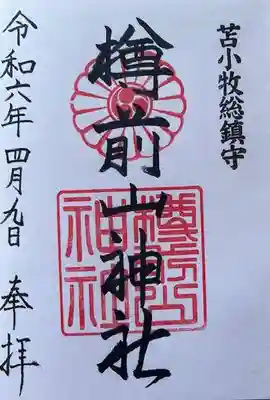 苫小牧総鎮守
樽前山神社
令和六年四月九日 奉拝